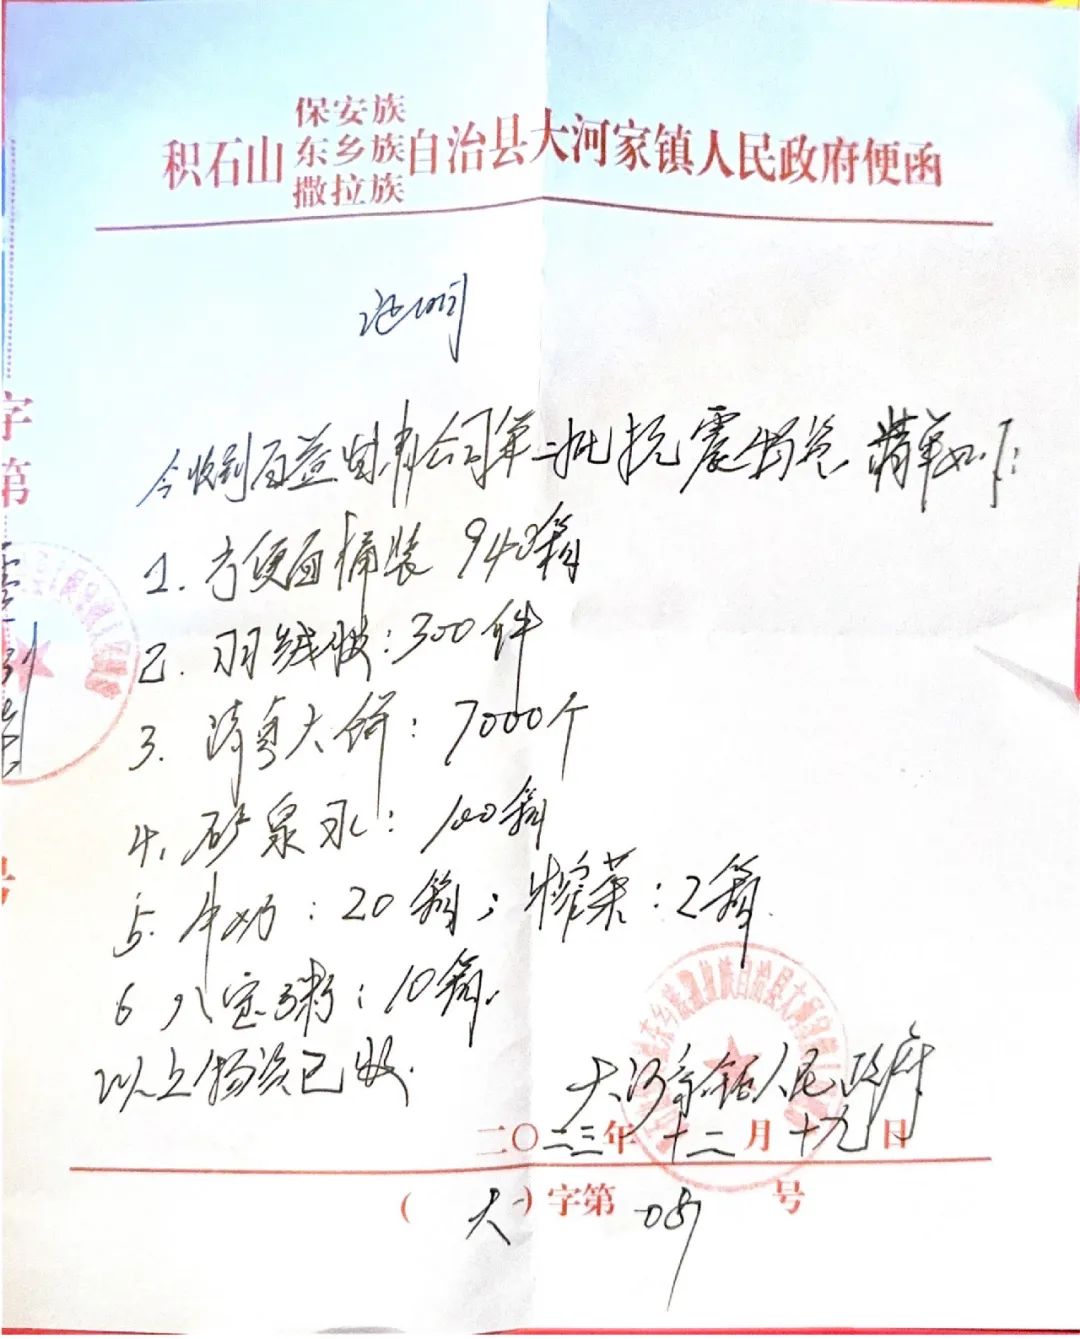 积石山保安族东乡族撒拉族自治县大河家镇人民政府便函
证明
今收到百益集团公司第二批抗震物资清单如下:
1. 方便面桶装 940箱
2. 羽绒被:300件
3. 清真大饼:7000个
4. 矿泉水:100箱
5. 牛奶:20箱;榨菜:2箱.
6 八宝粥:10箱.
以上物资已收.
大河家镇人民政府
二〇二三年十二月十九日
(大)字第 号
字第
号